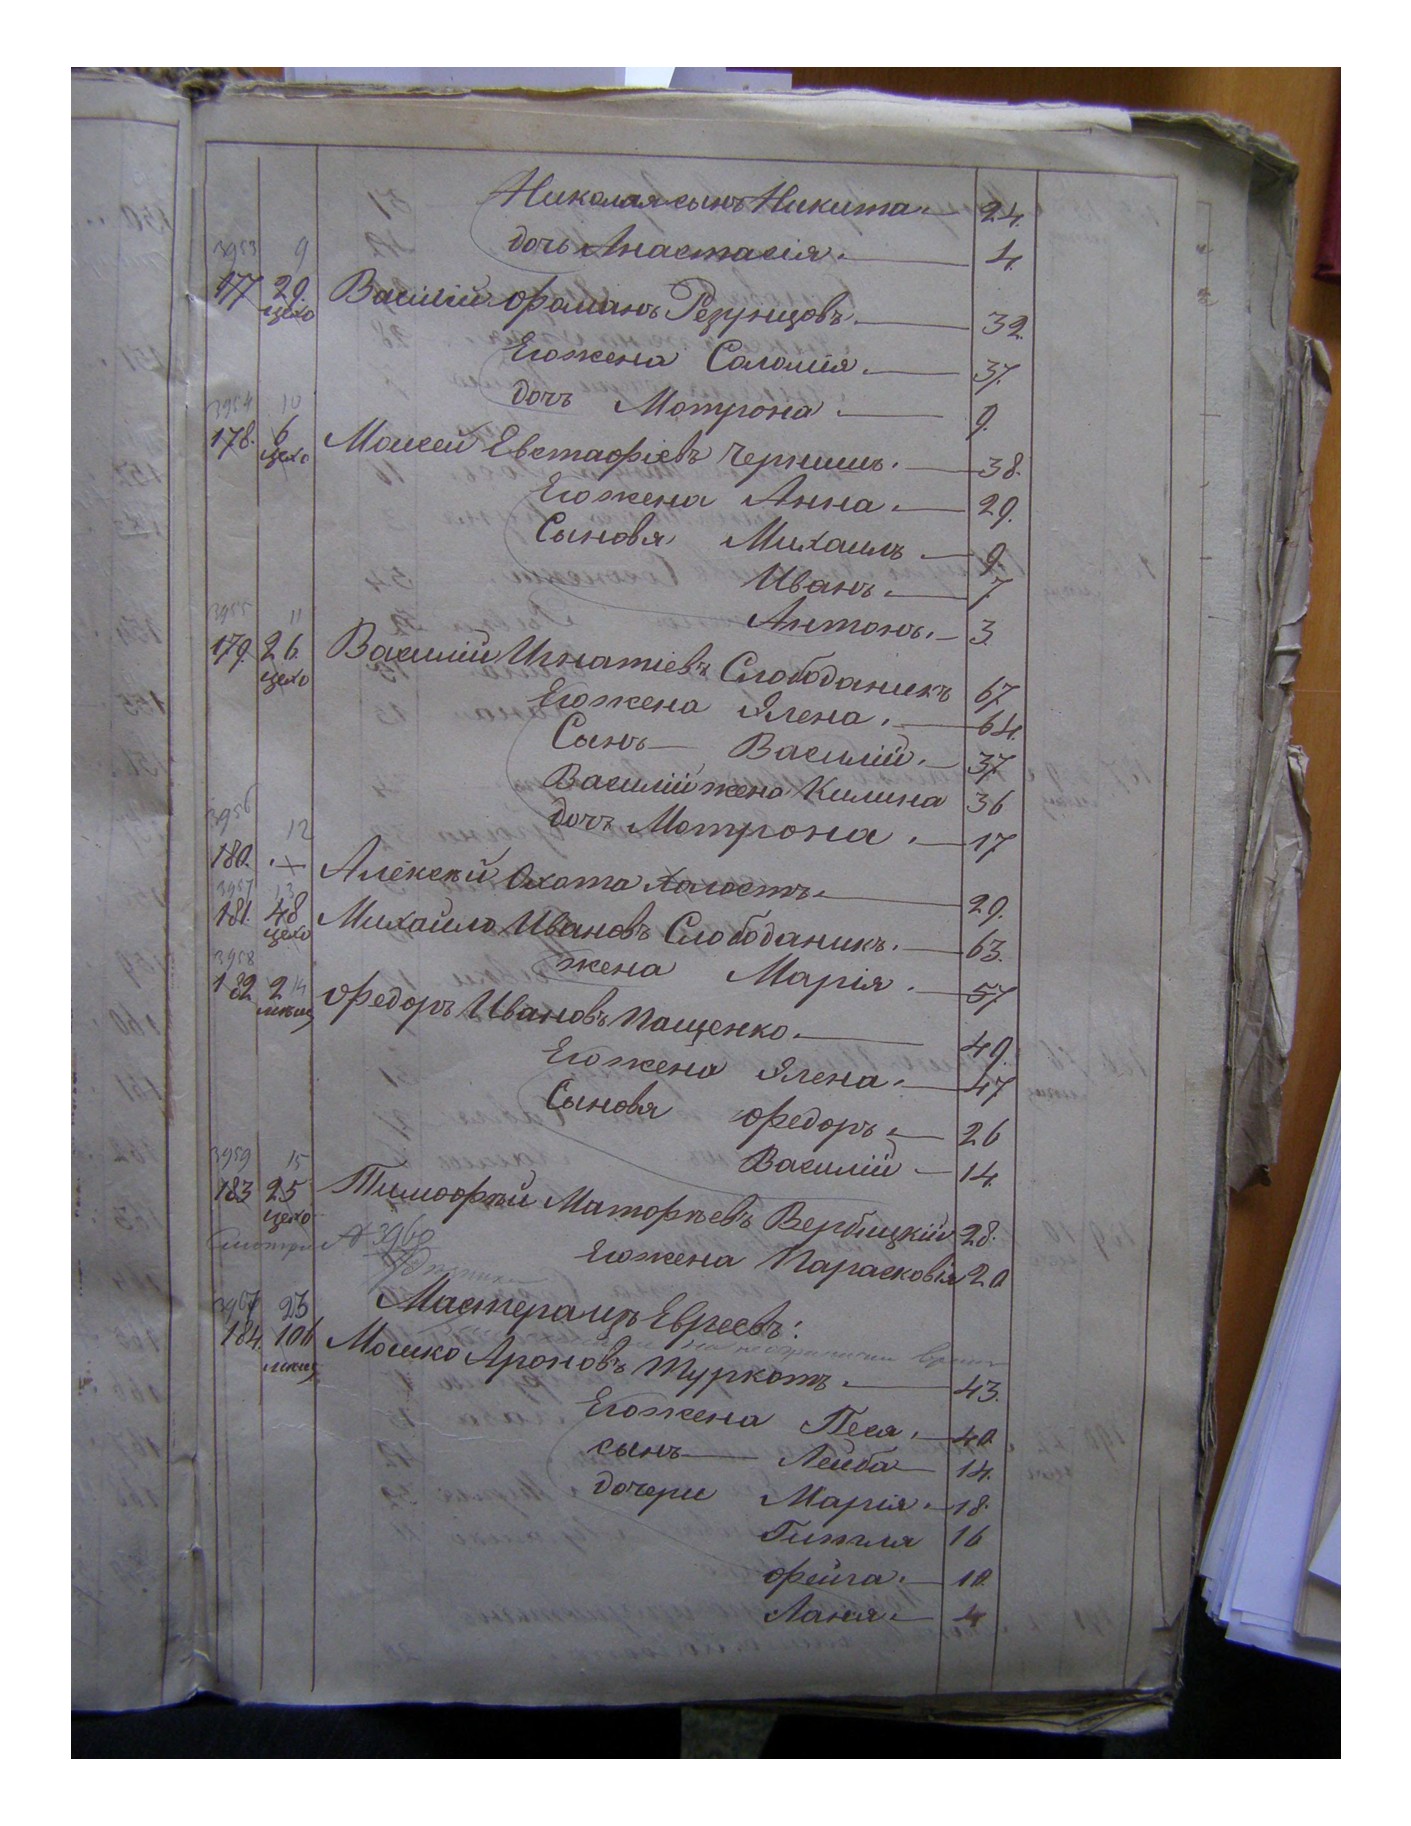 Николая сынъ Никита — 24.
дочь Анастасія. — 4.
3953 9
177 29. Василій Фоминъ Резунцовъ. — 32
цехо
Его жена Саломія. — 37.
дочь Мотрона. — 9.
3954 10
178. 6 Моисей Евстафіевъ Чернышъ. — 38.
цехо
Его жена Анна. — 29.
Сыновя Михаилъ — 9.
Иванъ. — 7.
Антонъ. — 3.
3955 11
179. 26. Василій Игнатіевъ Слободаникъ 67.
цехо
Его жена Ялена. — 64.
Сынъ — Василій. — 37.
Василій жена Килина 36
дочь Мотрона. — 17
3956 12
180. Алексѣй Охота Холостъ. — 29.
3957 13
181. 48 Михайло Ивановъ Слободаникъ. — 63.
цехо
жена Марія. — 57
3958 14
182 2 Федоръ Ивановъ Пащенко. — 49.
мѣщ
Его жена Ялена. — 47
Сыновя Федоръ. — 26
Василій — 14.
3959 15
183 25 Тимофѣй Матфѣевъ Вербицкій 28.
цехо
Смотри № 3960
Его жена Парасковія 20
Мастерацъ Евреевъ:
3967 23
184. 106 Мошко Ароновъ Туркотъ. — 43.
мѣщ
Его жена Песя. — 40.
сынъ — Лейба — 14.
дочери Марія. — 18.
Гитля 16
Фейга. — 10.
Ханя. — 4